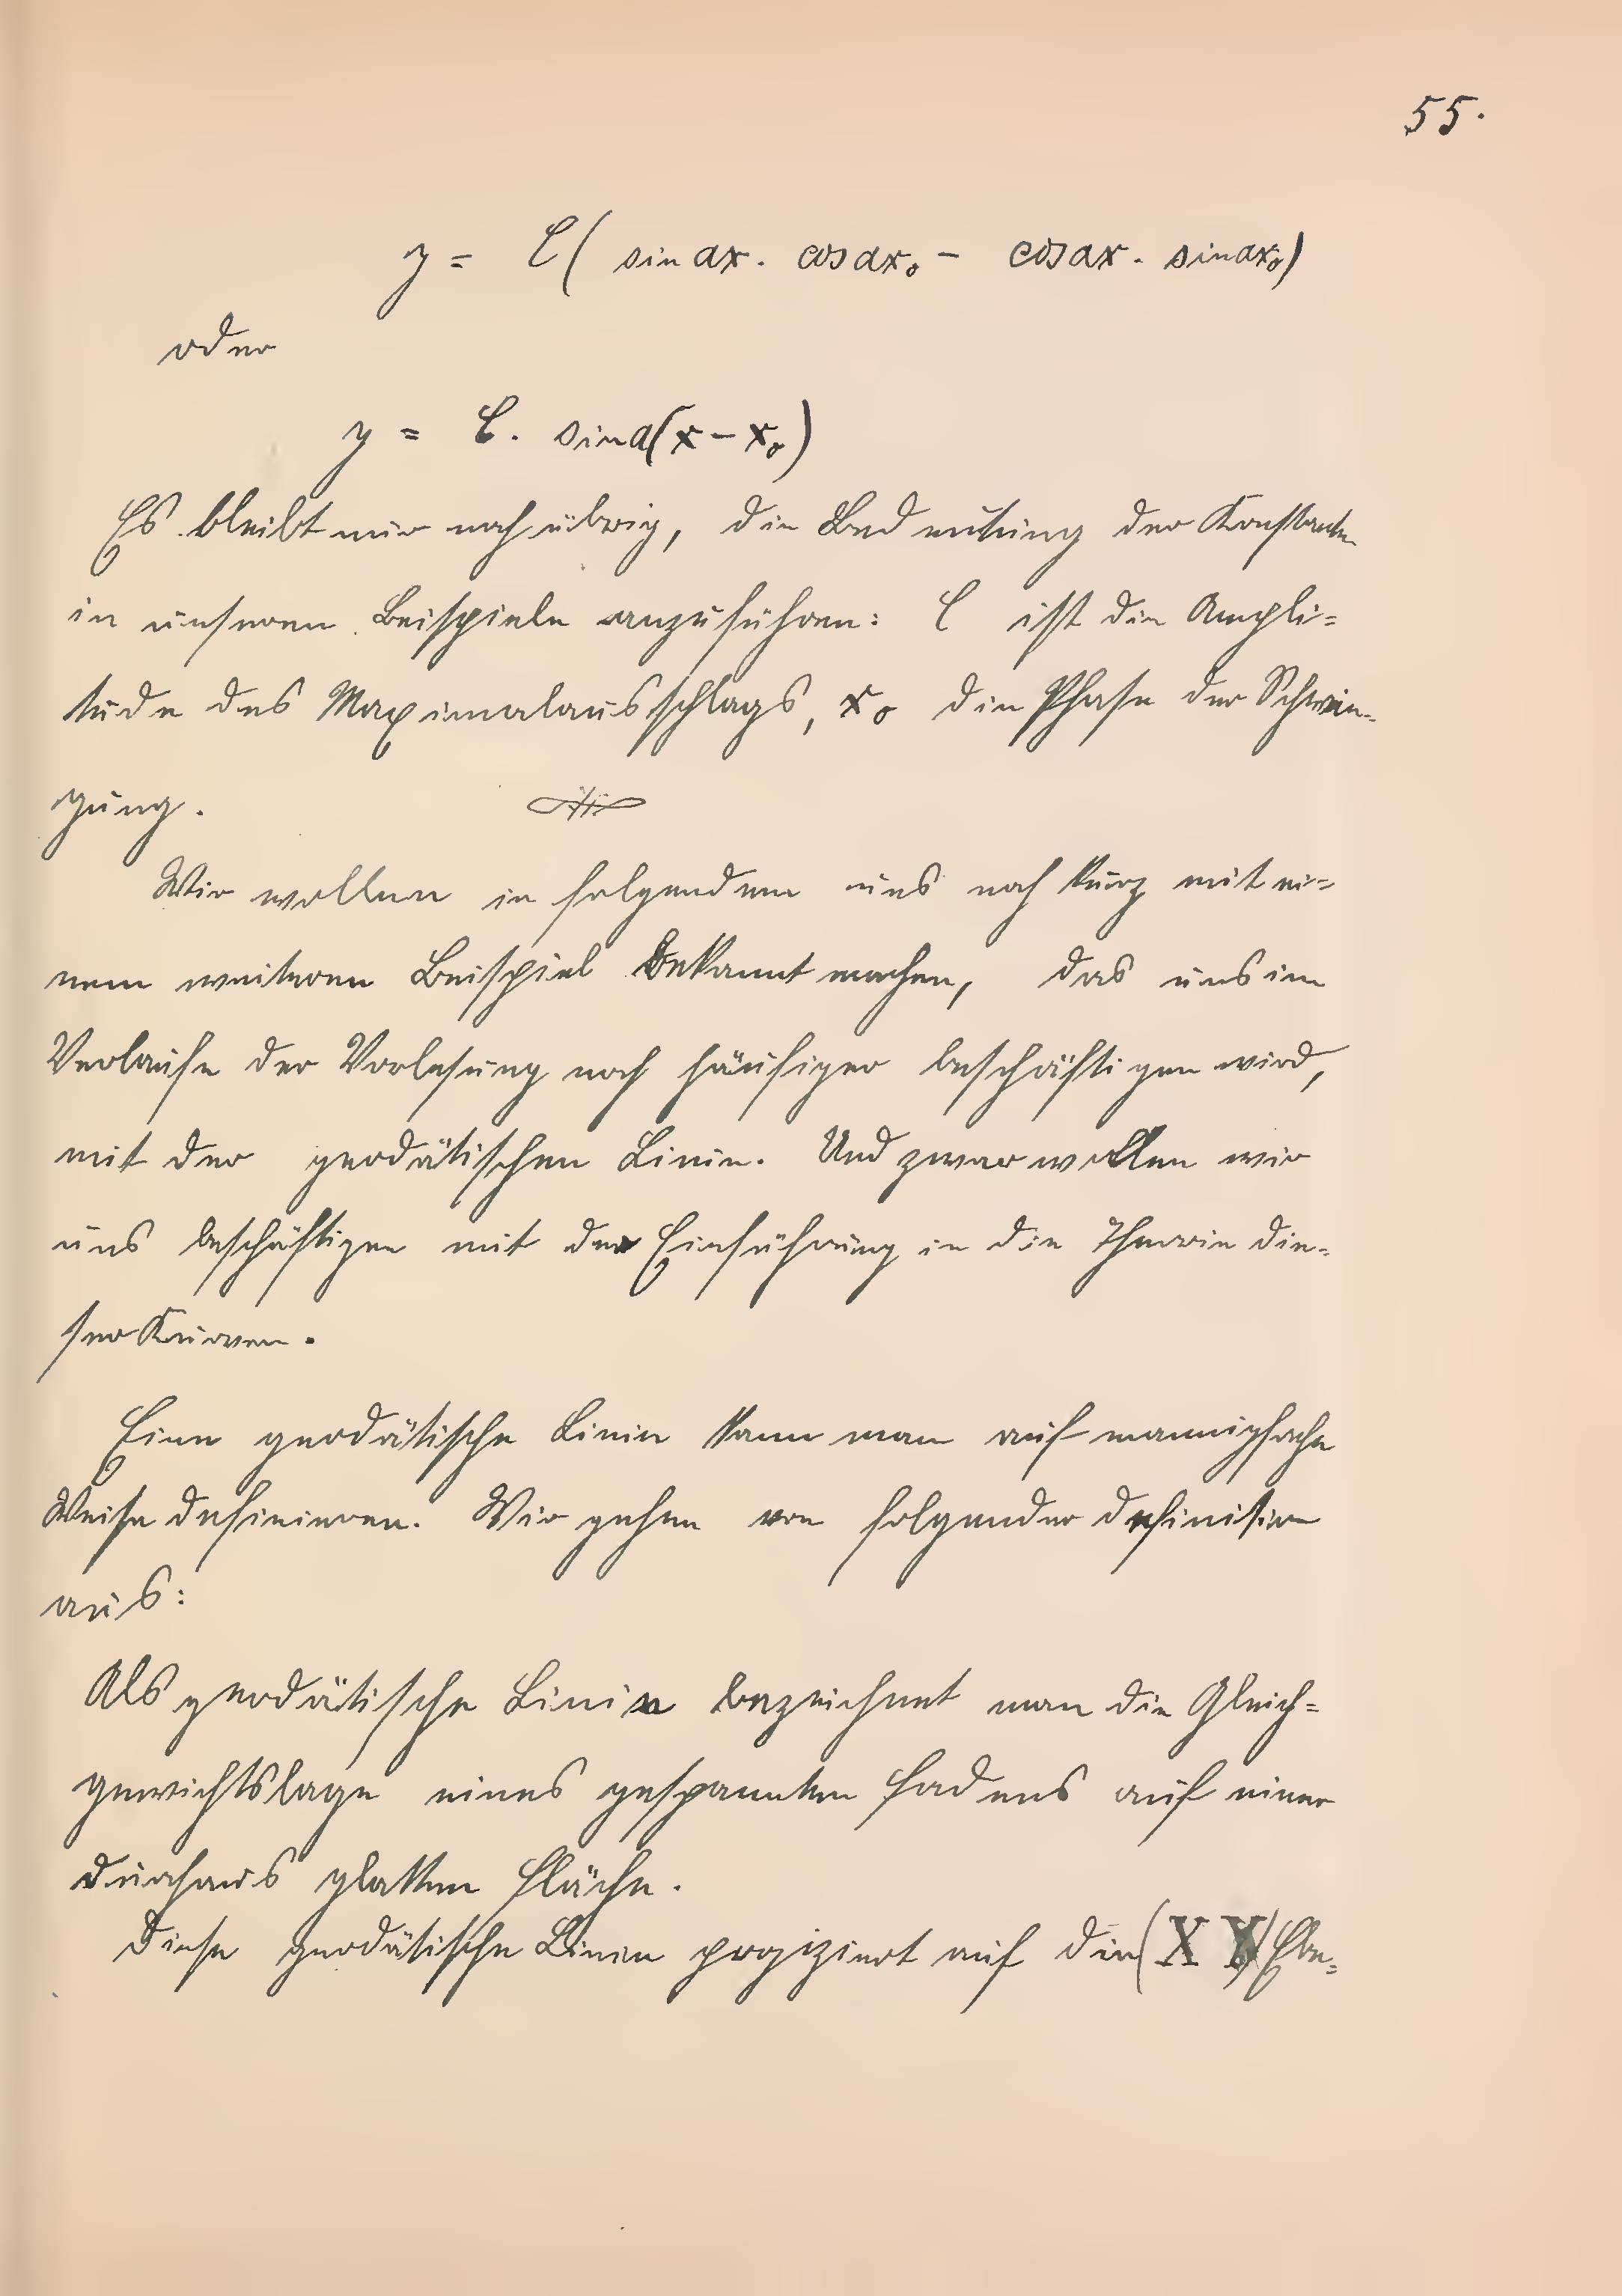 55.
y = C( sin ax. cos ax₀ - cos ax. sin ax₀)
oder
y = C. sin a(x-x₀)
Es bleibt nur noch übrig, die Bedeutung der Konstanten
in unseren Beispiele anzuführen: C ist die Ampli=
tude des Maximalausschlags, x₀ die Phase der Schwin=
gung.
Wir wollen in folgendem uns noch kurz mit ei=
nem weiteren Beispiel bekannt machen, das uns im
Verlaufe der Vorlesung noch häufiger beschäftigen wird,
mit der geodätischen Linie. Und zwar wollen wir
uns beschäftigen mit der Einführung in die Theorie die=
ser Kurven.
Eine geodätische Linie kann man auf mannigfache
Weise definieren. Wir gehen von folgender Definition
aus:
Als geodätische Linie bezeichnet man die Gleich=
gewichtslage eines gespannten Fadens auf einer
durchaus glatten Fläche.
Diese geodätische Linie projiziert auf die (X Y) Ebe=